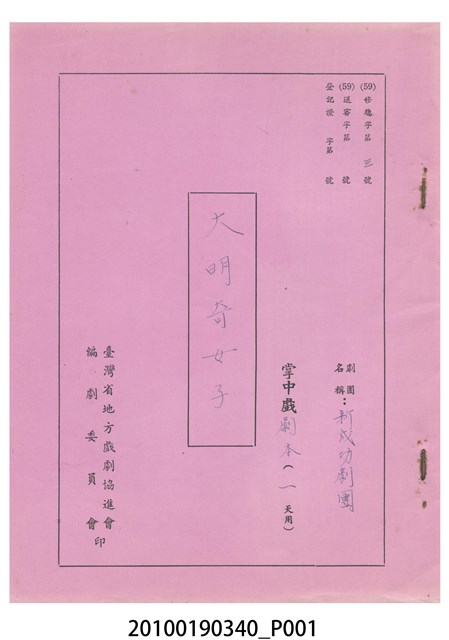 (59)修總字第 三 號
(59)送審字第 號
登記證 字第 號
劇團名稱：新成功劇團
掌中戲劇本(一天用)
大明奇女子
臺灣省地方戲劇協進會
編劇委員會印
20100190340_P001